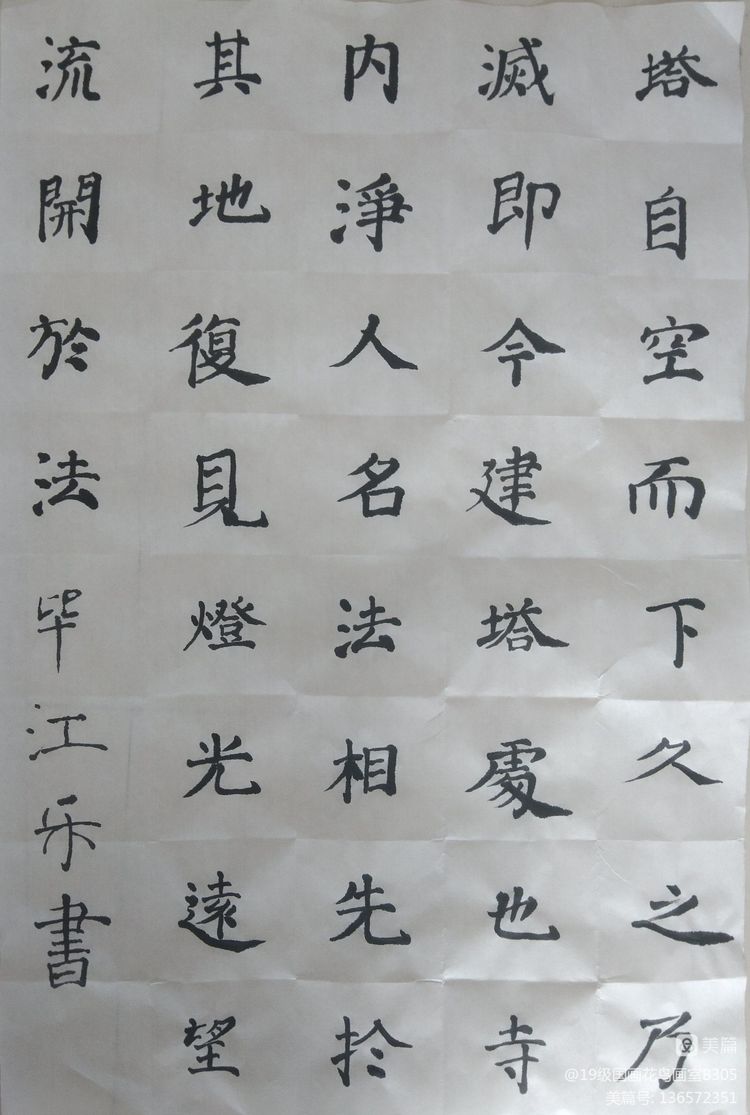 塔自空而下久之乃
滅即今建塔處也寺
内淨人名法相先於
其地復見燈光遠望
流開於法毕江乐書
美篇
@19级国画花鸟画室8305
美篇号: 136572351